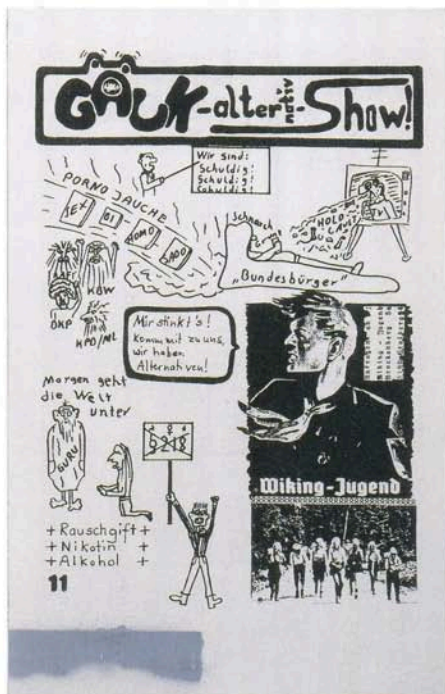 GAUK-alternativ-Show!
Wir sind:
Schuldig!
Schuldig!
Schuldig!
PORNO JAUCHE
SEX
HOMO
SADO
Schnarch
HOLO
CAUST
„Bundesbürger“
RAF
KBW
DKP
KPD/ML
Mir stinkt's!
Komm mit zu uns,
wir haben
Alternativen!
Morgen geht
die Welt
unter
GURU
§ 218
Wiking-Jugend
+ Rauschgift +
+ Nikotin +
+ Alkohol +
11